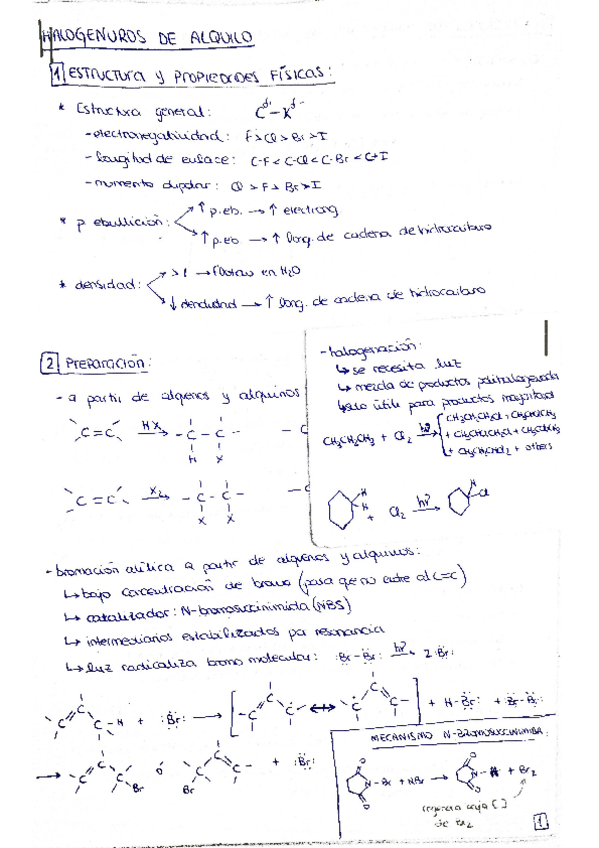 HALOGENUROS DE ALQUILO
1 ESTRUCTURA y PROPIEDADES FÍSICAS:
* Estructura general: C^δ+ - X^δ-
- electronegatividad: F > Cl > Br > I
- longitud de enlace: C-F < C-Cl < C-Br < C-I
- momento dipolar: Cl > F > Br > I
* p ebullición: ↑ p.eb. → ↑ electroneg
↑ p.eb → ↑ long. de cadena de hidrocarburo
* densidad: >1 → flotan en H2O
↓ densidad → ↑ long. de cadena de hidrocarburo
2 PREPARACIÓN:
- a partir de alquenos y alquinos
C=C HX → -C-C- - C
H X
C=C X2 → -C-C- -C
X X
- halogenación:
↳ se necesita luz
↳ mezcla de productos polihalogenados
↳ sólo útil para productos
CH3CH2CH3 + Cl2 hν →
+ others
H
H + Cl2 hν → Cl
- bromación alílica a partir de alquenos y alquinos:
↳ bajo concentración de bromo (para que no entre al C=C)
↳ catalizador: N-bromosuccinimida (NBS)
↳ intermediarios estabilizados por resonancia
↳ luz radicaliza bromo molecular: :Br-Br: hν → 2 :Br:
C=C C-H + :Br: → [C=C C ↔ C C=C] + H-Br: + Br-Br:
→ C=C C Br ó C C=C Br + :Br:
MECANISMO N-BROMOSUCCINIMIDA:
O N-Br O + HBr → O N-H O + Br2
de Br2
1